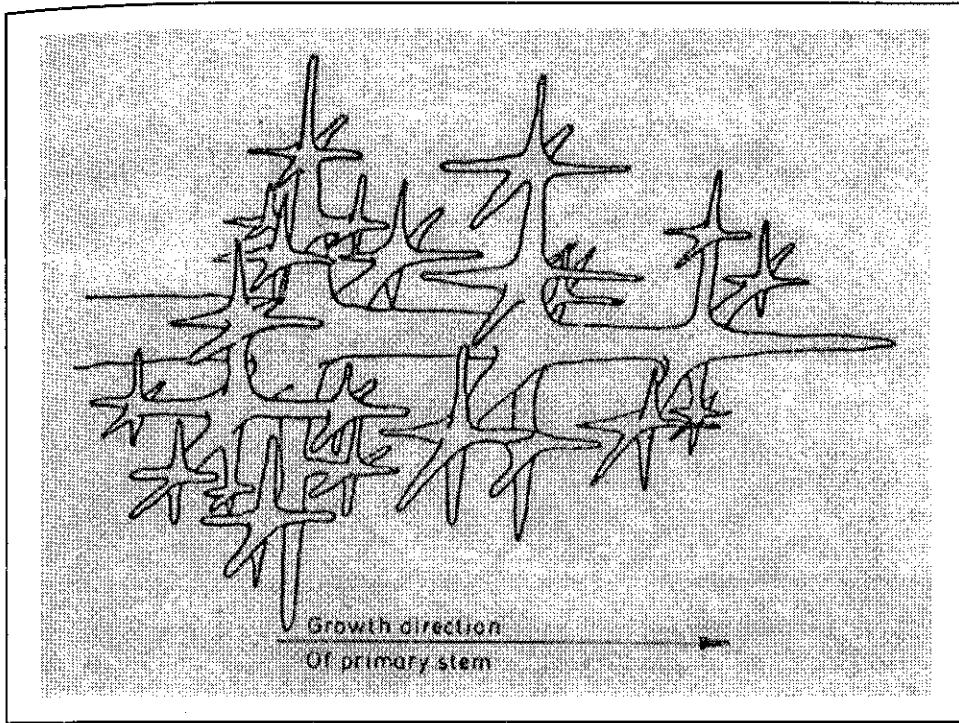 Growth direction
Of primary stem